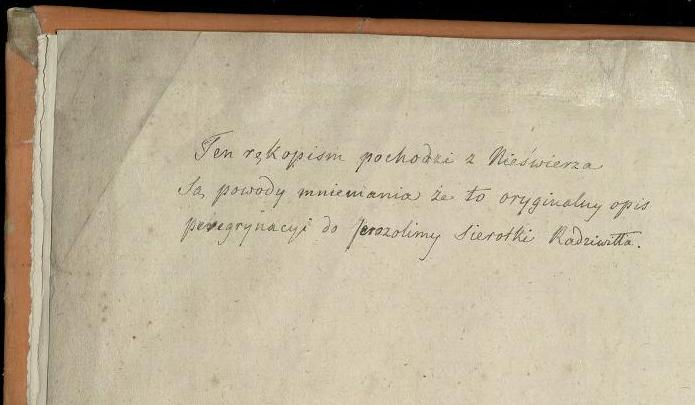 Ten rękopism pochodzi z Nieświerza
Są powody mniemania że to oryginalny opis
peregrynacyi do Jerozolimy Sierotki Radziwiłła.